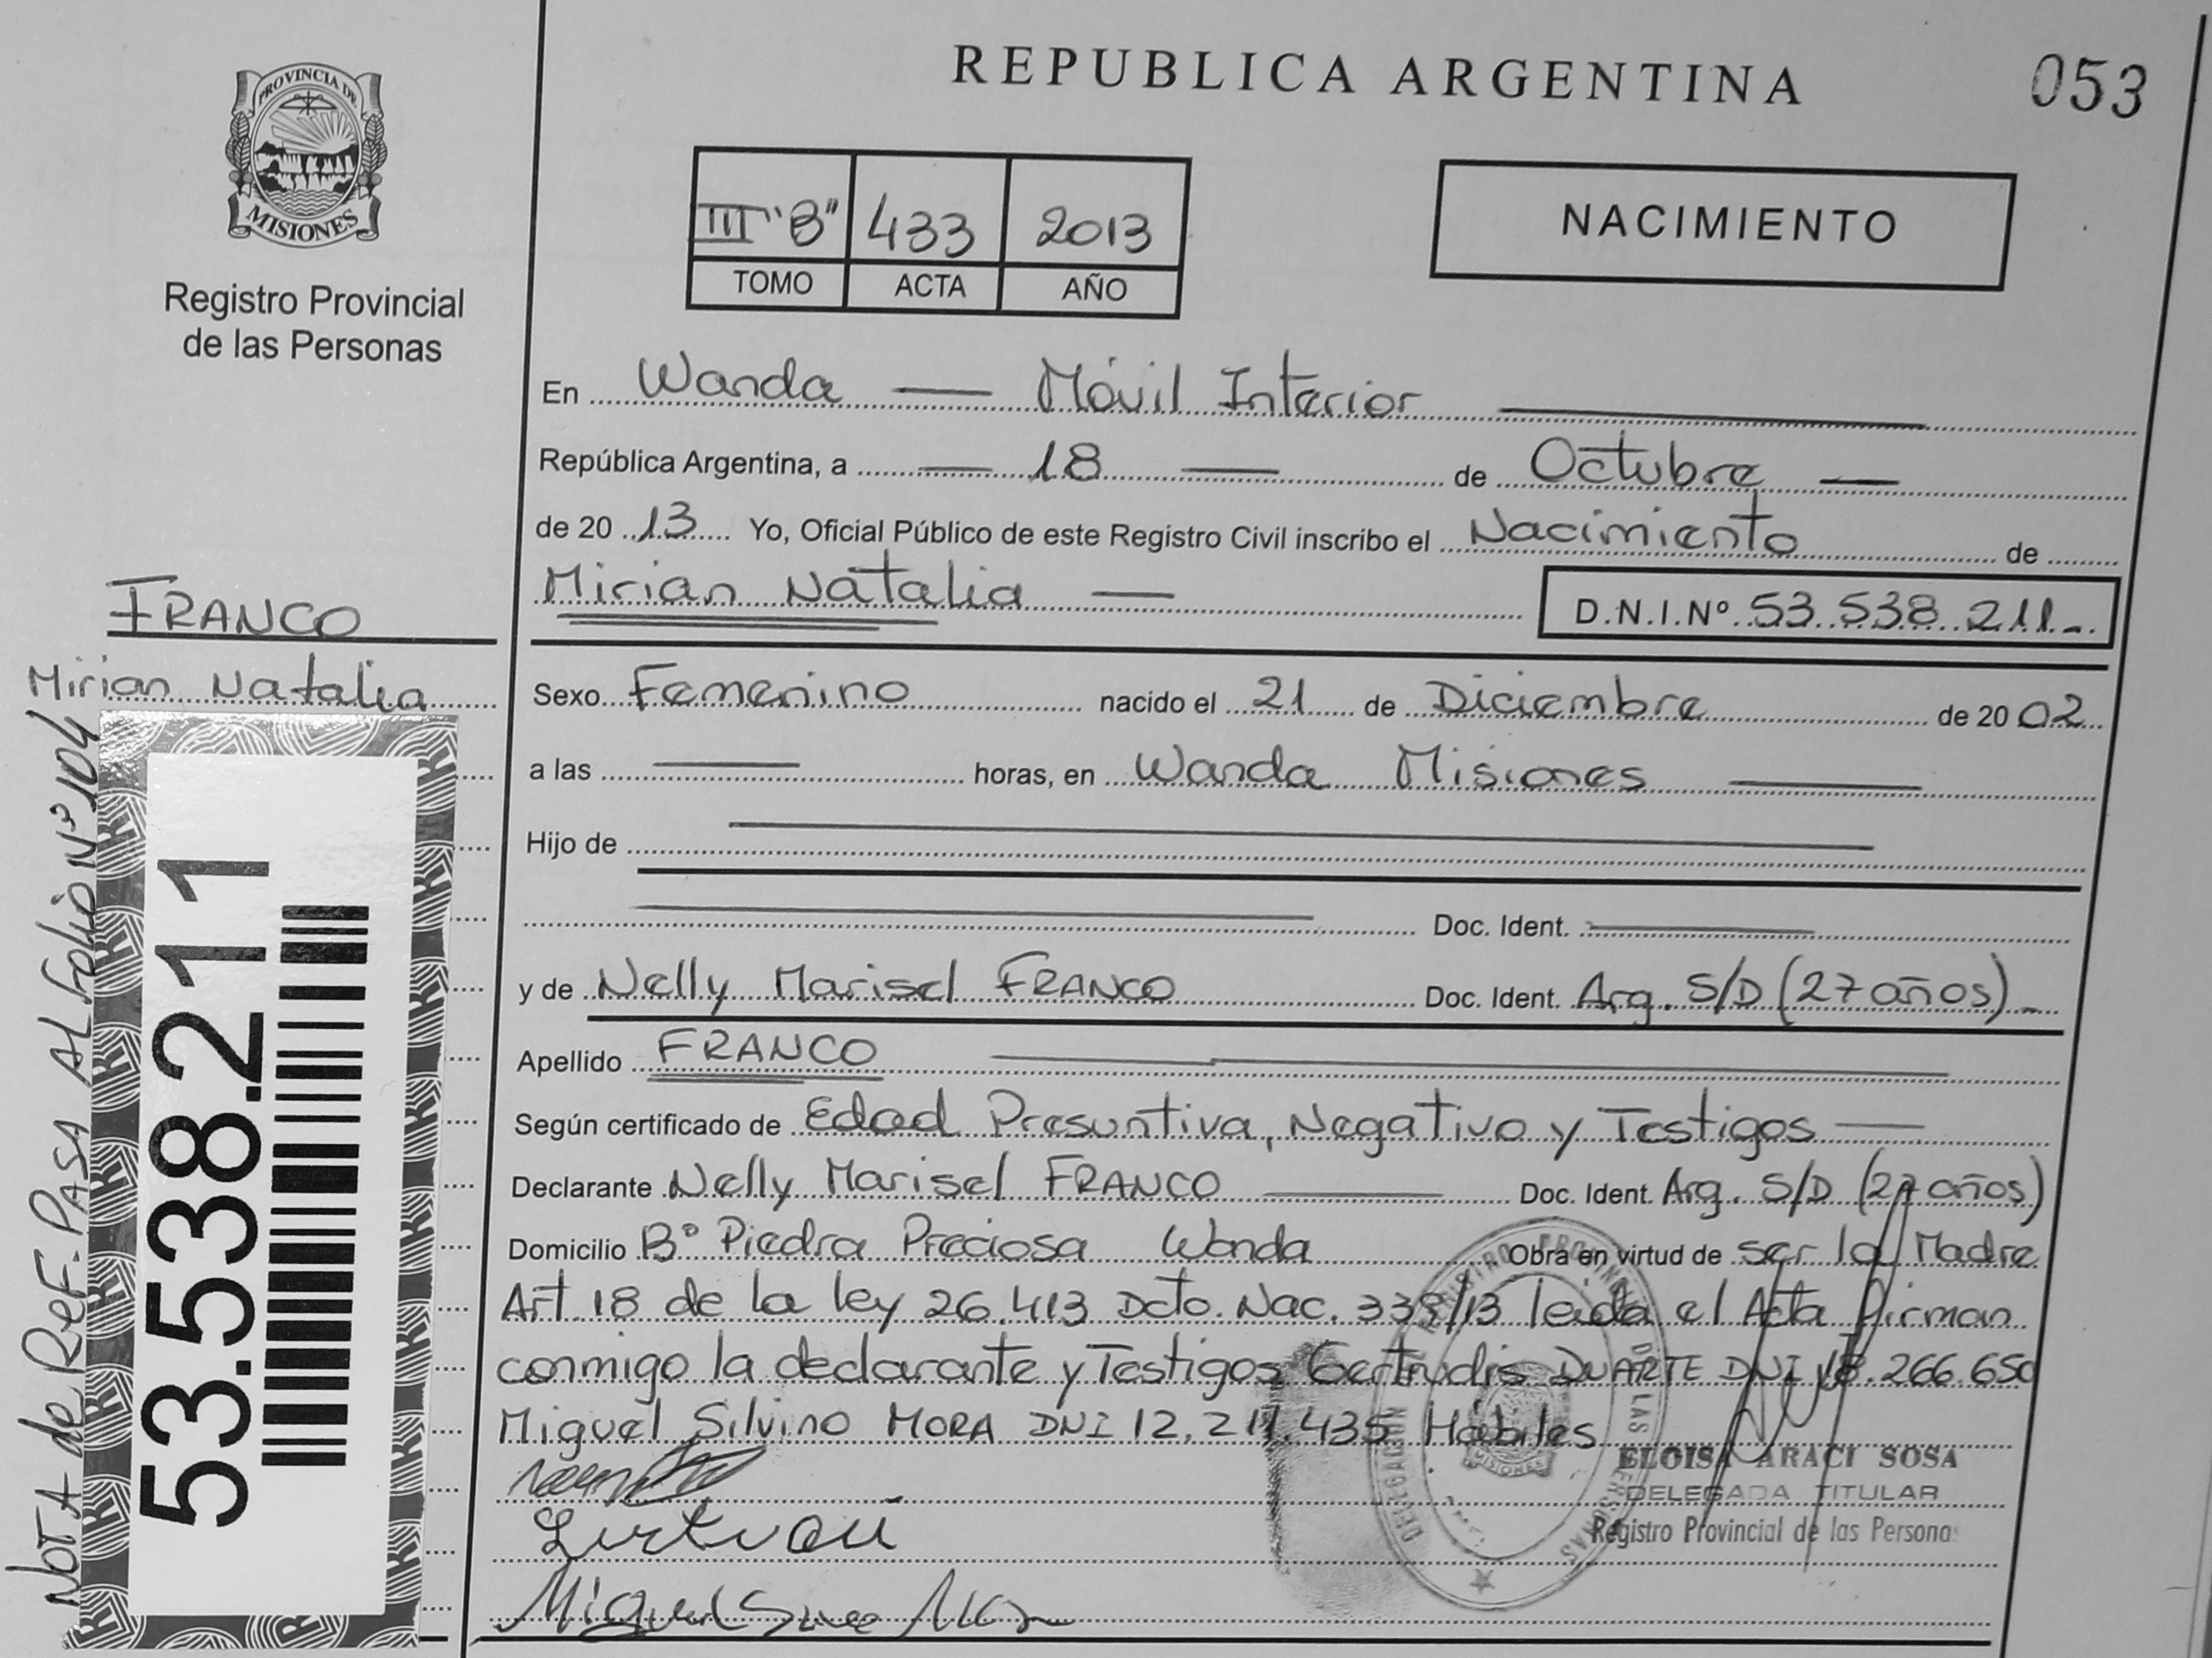 REPUBLICA ARGENTINA
053
PROVINCIA DE
MISIONES
Registro Provincial
de las Personas
III "B" 433 2013
TOMO ACTA AÑO
NACIMIENTO
En Wanda — Móvil Interior
República Argentina, a — 18 — de Octubre —
de 20 13 Yo, Oficial Público de este Registro Civil inscribo el Nacimiento de
Mirian Natalia —
D.N.I.Nº 53.538.211.-
FRANCO
Mirian Natalia
Sexo Femenino nacido el 21 de Diciembre de 20 02
a las — horas, en Wanda Misiones —
Hijo de
Doc. Ident.
y de Nelly Marisel FRANCO Doc. Ident. Arg. S/D (27 años).-
Apellido FRANCO
Según certificado de Edad Presuntiva, Negativo y Testigos —
Declarante Nelly Marisel FRANCO — Doc. Ident. Arg. S/D (27 años)
Domicilio Bº Piedra Preciosa Wanda Obra en virtud de ser la Madre
Art. 18 de la ley 26.413 Dcto. Nac. 339/13 leida el Acta firman
conmigo la declarante y Testigos Gertrudis DUARTE DNI 18.266.650
Miguel Silvino MORA DNI 12.211.435 Hábiles
ELOISA ARACI SOSA
DELEGADA TITULAR
Registro Provincial de las Personas
NOTA de REF. PASA AL Folio Nº 104
53.538.211